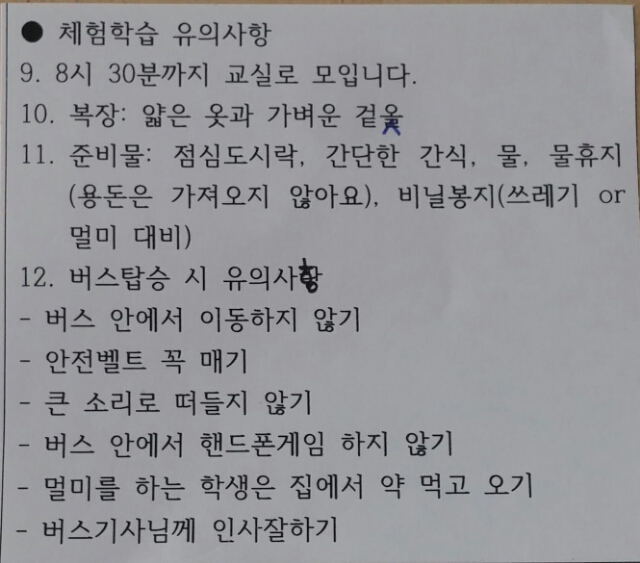 ● 체험학습 유의사항
9. 8시 30분까지 교실로 모입니다.
10. 복장: 얇은 옷과 가벼운 겉옷
11. 준비물: 점심도시락, 간단한 간식, 물, 물휴지
(용돈은 가져오지 않아요), 비닐봉지(쓰레기 or
멀미 대비)
12. 버스탑승 시 유의사항
- 버스 안에서 이동하지 않기
- 안전벨트 꼭 매기
- 큰 소리로 떠들지 않기
- 버스 안에서 핸드폰게임 하지 않기
- 멀미를 하는 학생은 집에서 약 먹고 오기
- 버스기사님께 인사잘하기